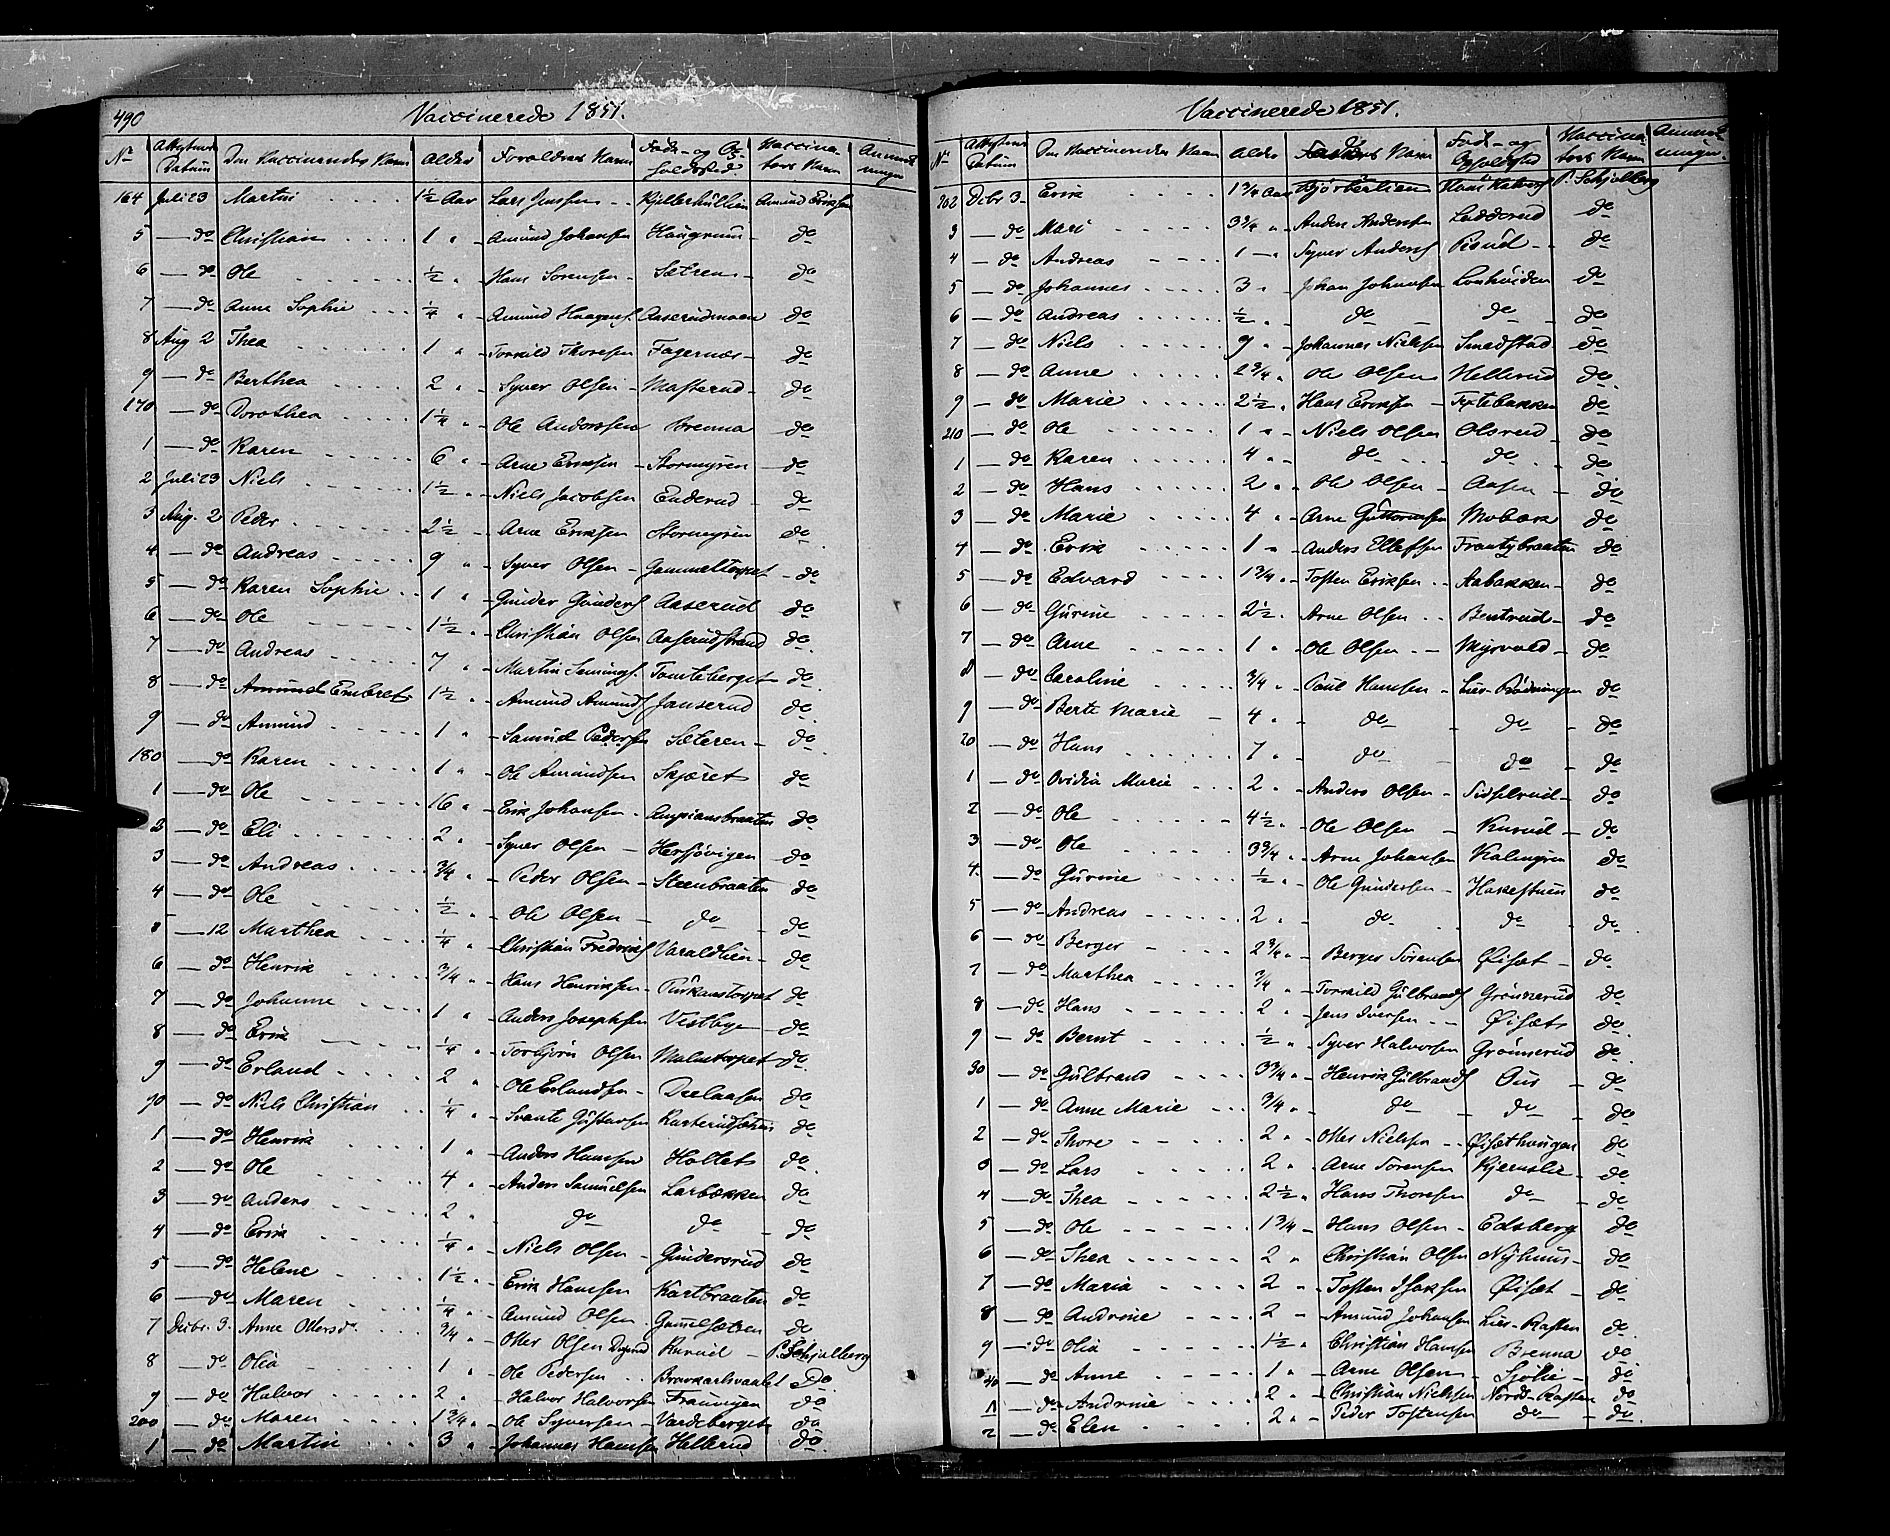 490
Vaccinerede 1851.
No Attestens Datum Den Vaccineredes Navn Alder Forældres Navn Føde- og Opholdssted Vaccinators Navn Anmærkninger
164 Juli 23 Martin 1½ Aar Lars Jensen Kjellerhullien Amund Eriksen
5 — do Christian 1 " Amund Johansen Haugrum do
6 — do Ole ½ " Hans Sørensen Sætren do
7 — do Anne Sophie ¼ " Amund Haagens. Aaserudmoen do
8 Aug 2 Thea 1 " Torkild Thoresen Fagernæs do
9 — do Berthea 2 " Syver Olsen Masterud do
170 — do Dorothea 1¼ " Ole Anderssen Brenna do
1 — do Karen 6 " Arne Eriksen Stormyren do
2 Juli 23 Niels 1½ " Niels Jacobsen Enderud do
3 Aug. 2 Peder 2½ " Arne Eriksen Stormyren do
4 — do Andreas 9 " Syver Olsen Gammeltorpet do
5 — do Karen Sophie 1 " Gunder Gunders Aaserud do
6 — do Ole 1½ " Christian Olsen Aaserudstrand do
7 — do Andreas 7 " Martin Semings. Tomteberget do
8 — do Amund Embret 1½ " Amund Amunds Janserud do
9 — do Amund 1 " Samuel Pedersen Sæteren do
180 — do Karen 1 " Ole Amundsen Skjæret do
1 — do Ole 16 " Erik Johansen Ampiansbraaten do
2 — do Eli 2 " Syver Olsen Hersjøvigen do
3 — do Andreas ¾ " Peder Olsen Steenbraaten do
4 — do Ole ½ " Ole Olsen do do
5 — 12 Marthea ¼ " Christian Fredriks Varaldlien do
6 — do Henrik ¾ " Hans Henriksen Purkanstorpet do
7 — do Johanne 1 " Anders Josephsen Vestbye do
8 — do Erik ¼ " Torbjørn Olsen Malmtorpet do
9 — do Erland 2 " Ole Erlandsen Trelaasen do
90 — do Niels Christian ¼ " Svante Gustavsen do
1 — do Henrik 1 " Anders Hansen Holtet do
2 — do Ole 4 " Anders Samuelsen Larbækken do
3 — do Anders 2 " do do do
4 — do Erik ¼ " Niels Olsen Gundersrud do
5 — do Helene 1½ " Erik Hansen Kartbraaten do
6 — do Maren ¼ " Amund Olsen Gamelsætren do
7 Decbr. 3. Anne Ottersdr. ¾ " Otter Olsen Kurud P. Schjølberg
8 — do Olia 1 " Ole Pedersen do
9 — do Halvor 2 " Halvor Halvorsen Frauvigen do
200 — do Maren 1¾ " Ole Syversen Vardeberget do
1 — do Martin 3 " Johannes Hansen Hellerud do
Vaccinerede 1851.
No Attestens Datum Den Vaccineredes Navn Alder Navn Føde- og Opholdssted Vaccinators Navn Anmærkninger.
202 Dcbr 3 Erik 1¾ Aar Bjørbærlien Hans Halvors P. Schjølberg
3 — do Mari 3¾ " Anders Andersen Ladderud do
4 — do Andreas 1 " Syver Anders Pisrud do
5 — do Johannes 3 " Johan Johansen Lonhøiden do
6 — do Andreas ½ " do do do
7 — do Niels 9 " Johannes Nielsen Smedstad do
8 — do Anne 2¾ " Ole Olsen Hellerud do
9 — do Marie 2½ " Hans Eriksen Tjxtebakken do
210 — do Ole 1 " Niels Olsen Olsrud do
1 — do Karen 4 " do do do
2 — do Hans 2 " Ole Olsen Aasen do
3 — do Marie 4 " Arne Guttormsen Mobæk do
4 — do Erik 1 " Anders Ellefsen Frantzbraaten do
5 — do Edvard 1¾ " Tosten Eriksen Aabakken do
6 — do Gurine 2½ " Arne Olsen Bentrud do
7 — do Arne 1 " Ole Olsen Myrvold do
8 — do Caroline ¾ " Paul Hansen Lier-Rødningen do
9 — do Berte Marie 4 " do do do
20 — do Hans 7 " do do do
1 — do Ovidia Marie 2 " Anders Olsen Sidselrud do
2 — do Ole 4½ " Ole Olsen Kurud do
3 — do Ole 3¾ " Arne Johansen Kalmyren do
4. — do Gurine ½ " Ole Gundersen Hassestuen do
5 — do Andreas 2 " do do do
6 — do Berger 2¾ " Berger Sørensen Øisæt do
7 — do Marthea ¾ " Torkild Gulbrands Grønnerud do
8 — do Hans 2 " Jens Iversen Øisæt do
9 — do Bernt ½ " Syver Halvorsen Grønnerud do
30 — do Gulbrand 3¾ " Henrik Gulbrands Ous do
1 — do Anne Marie ¾ " do do do
2 — do Thore 2 " Otter Nielsen Øisæthaugen do
3 — do Lars 2 " Arne Sørensen Kjernslie do
4 — do Thea 2½ " Hans Thoresen do do
5 — do Ole 1¾ " Hans Olsen Edsberg do
6 — do Thea 2 " Christian Olsen Nyhuus do
7 — do Maria 2 " Tosten Isaksen Øisæt do
8 — do Andrine 2 " Amund Johansen Lier-Kasten do
9 — do Olia 1½ " Christian Hansen Brenna do
40 — do Anne 1 " Arne Olsen Sjølie do
1 — do Andrine 2 " Christian Nielsen Nordt-Kasten do
2 — do Elen 2 " Peder Tostensen do do